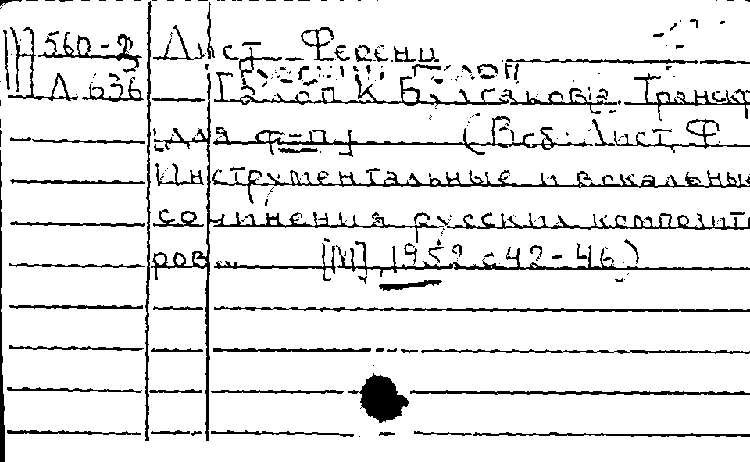 Ш 560-2 Лист Ференц
Русский галоп
Л 636 Галоп К Булгакова. Транскр
[для ф-п] (В сб: Лист Ф
Инструментальные и вокальные
сочинения русских композито
ров... [М], 1952 с 42-46)